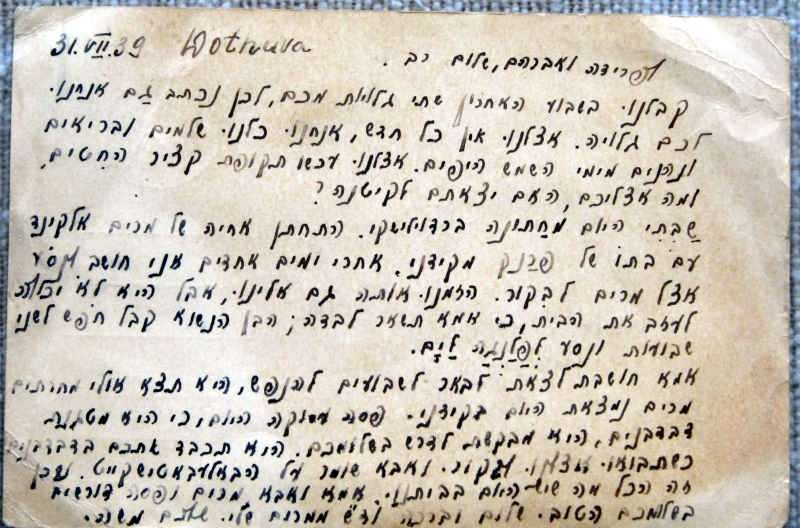 31.VII.39 Dotnuva
פרידה ואברהם, שלום רב.
קבלנו בשבוע האחרון שתי גלויות מכם, לכן נכתב גם אנחנו
לכם גלויה. אצלנו אין כל חדש, אנחנו כלנו שלמים ובריאים
ונהנים מימי השמש היפים. אצלנו עכשו תקופת קציר החטים,
ומה אצליכם, האם יצאתם לקיטנה?
שבתי היום מחתונה ברדוילישקי. התחתן אחיה של מרים אלקינד
עם בתו של פרנק מקידני. אחרי ימים אחדים אני חושב לנסע
אצל מרים לבקור. הזמנו אותה גם אלינו, אבל היא לא יכלה
לעזב את הבית, כי אמא תשאר לבדה; הבן הנשוא קבל חפש לשני
שבועות ונסע לפלנגה לים.
אמא חושבת לצאת לשבועים להנפש, היא תצא אולי מחרתים
מרים נמצאת היום בקידני. פסה עסוקה היום, כי היא מטגנת
דבדבנים, היא מבקשת לדרש בשלומכם. היא תכבד אתכם בדבדבנים
כשתבואו אצלנו לבקור. ואבא שומר על
זה הכל מה שיש היום בביתנו. אמא ואבא מרים ופסה דורשים
בשלומכם הטוב. שלום וברכה וד"ש ממרים שלי. שלכם משה.